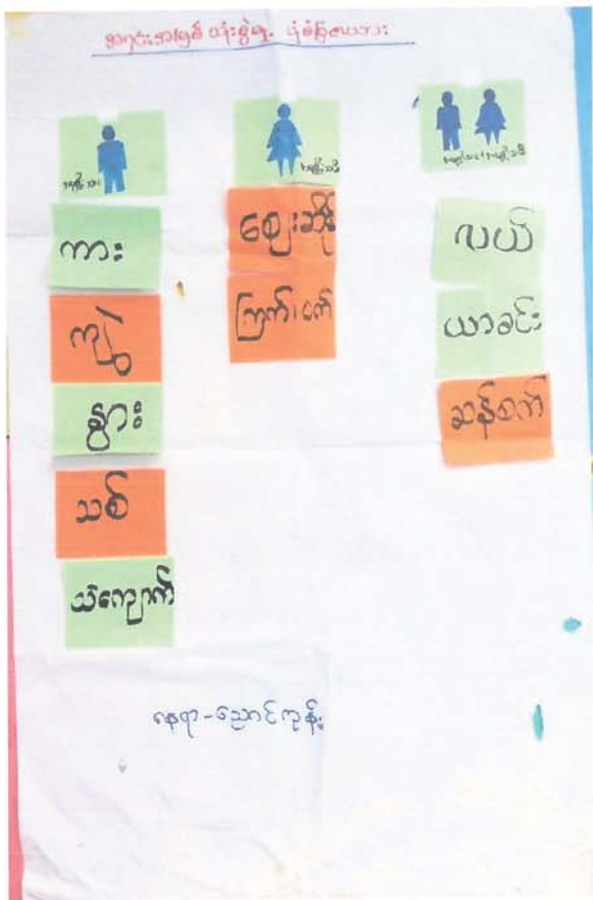 အရင်းအမြစ် သုံးစွဲမှု ပုံစံပြဇယား
အမျိုးသား
အမျိုးသမီး
အမျိုးသား၊ အမျိုးသမီး
ကား
ကျွဲ
နွား
သစ်
သဲကျောက်
ဈေးဆိုင်
ကြက်၊ ဝက်
လယ်
ယာခင်း
ဆန်စက်
နေရာ-ညောင်ကုန်း